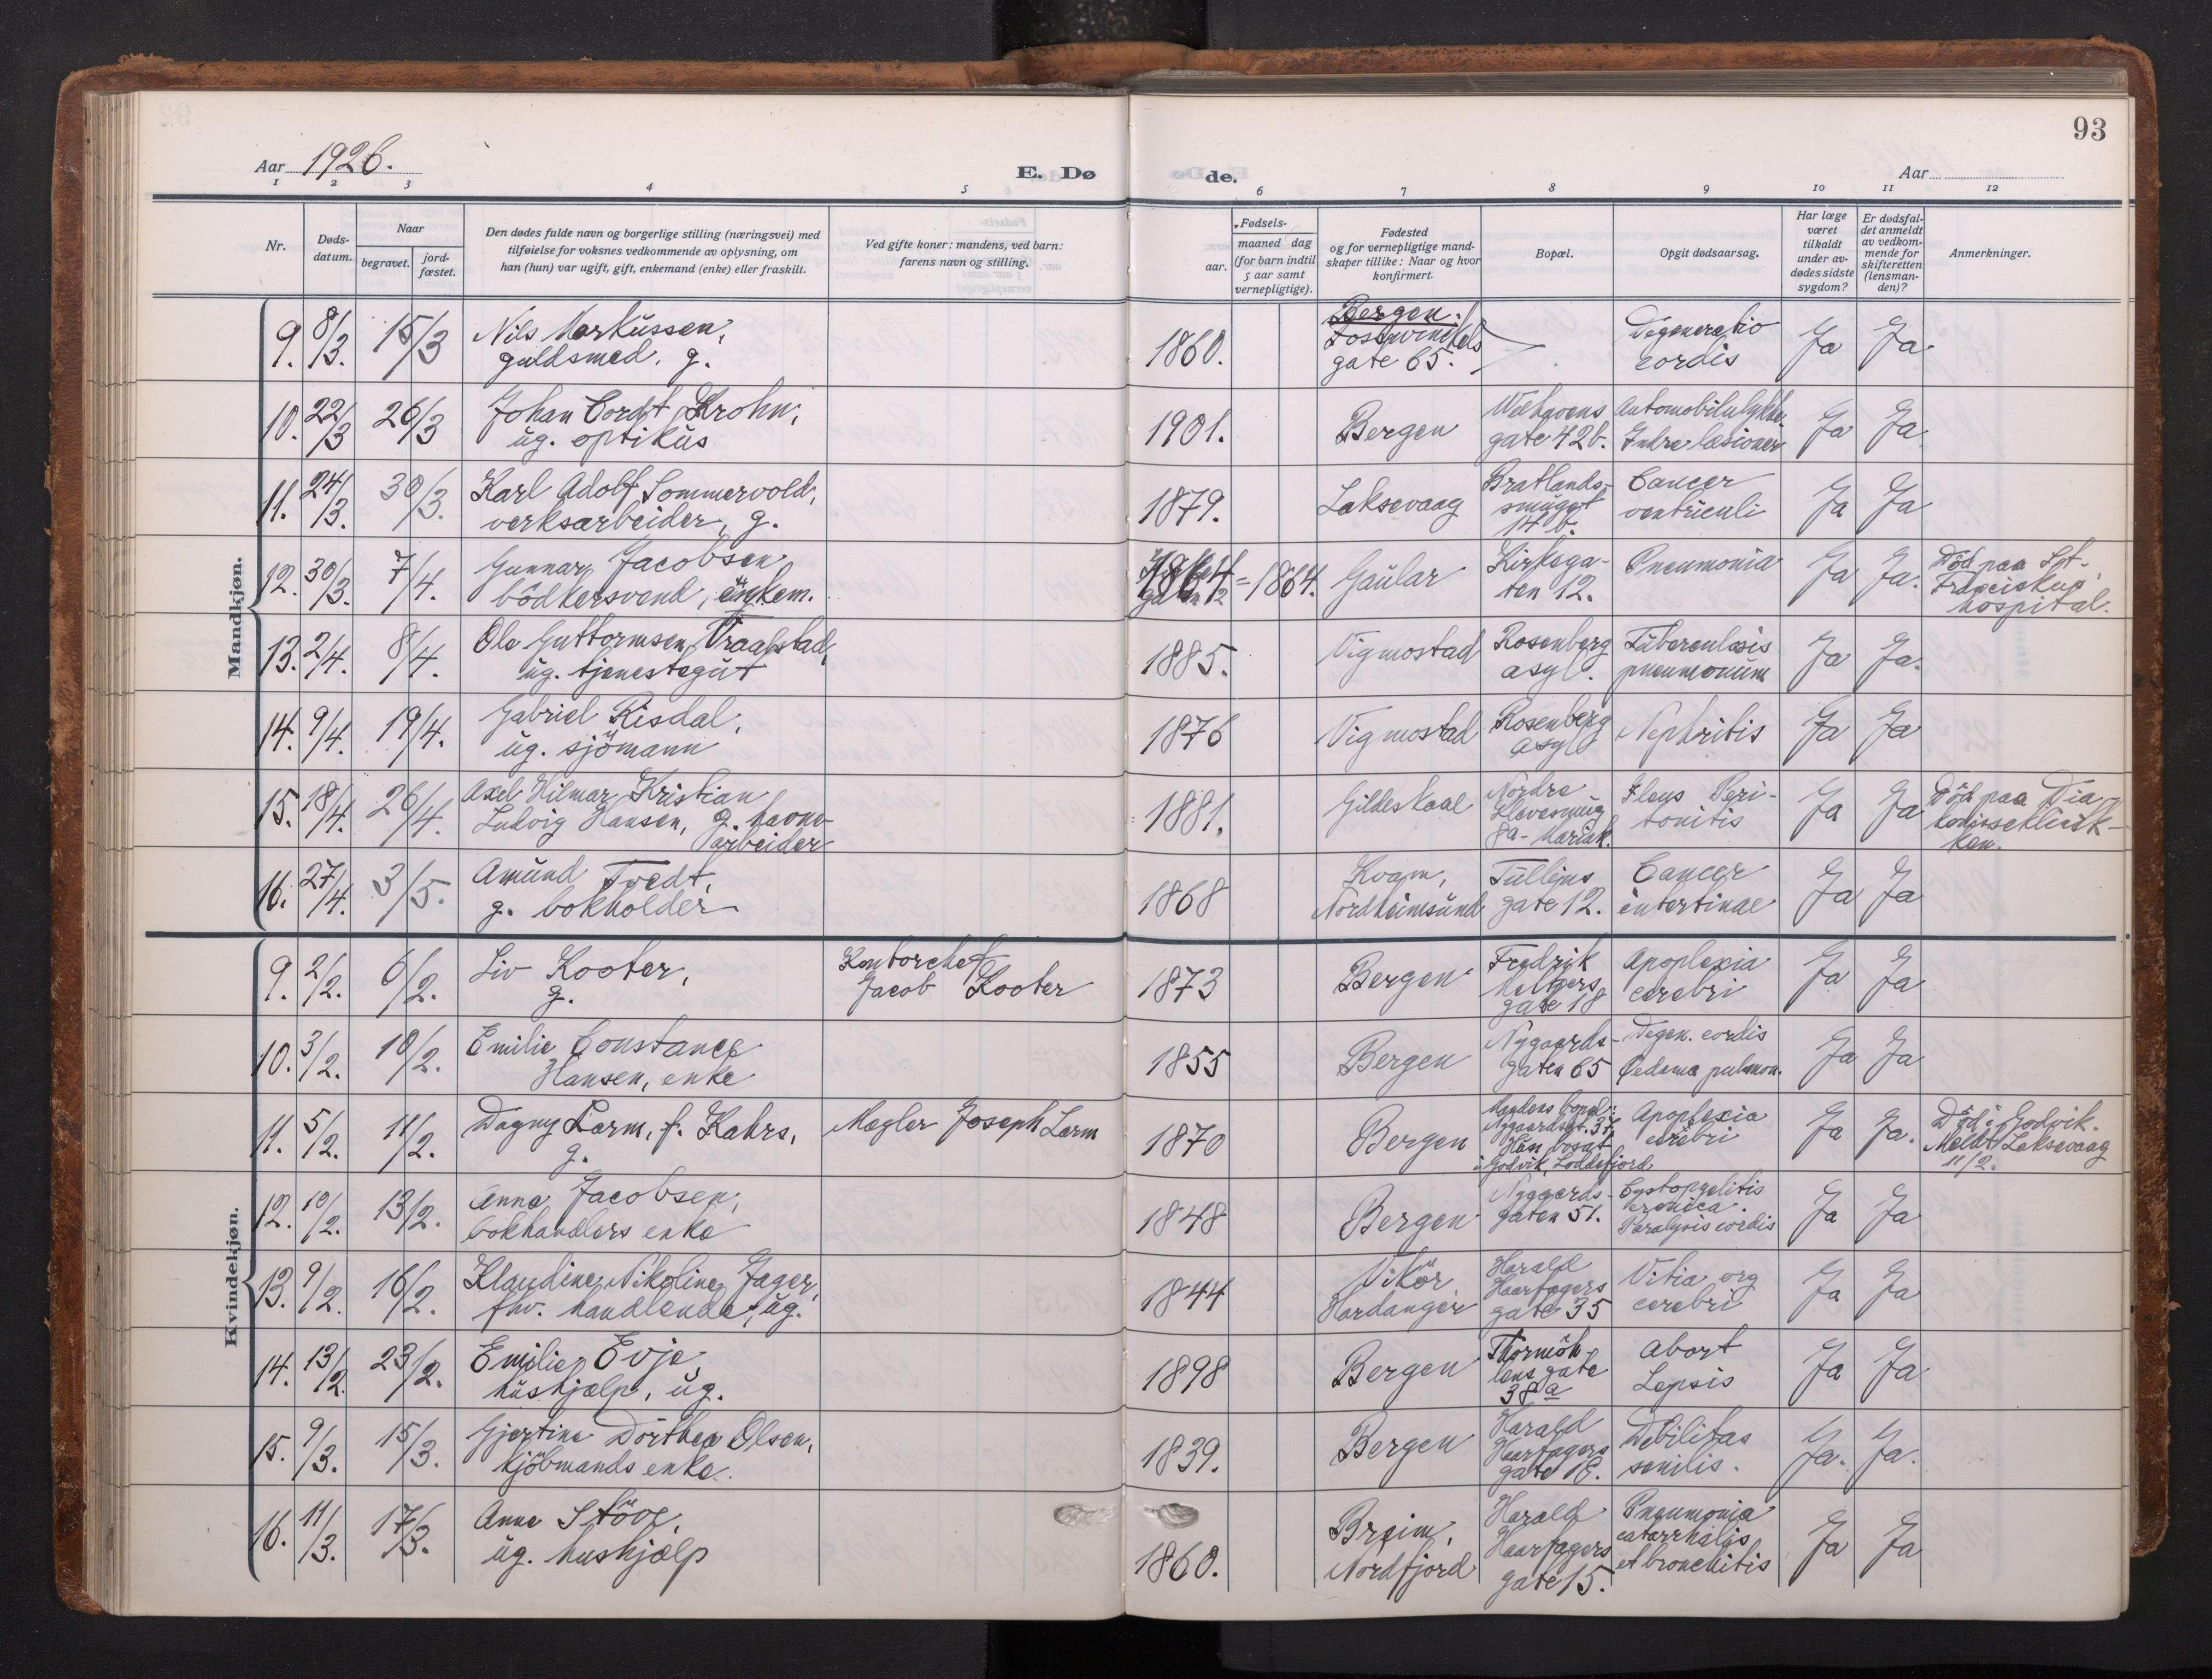 93
Aar 1926.
E. Dø
de.
Aar
1 2 3 4 5 6 7 8 9 10 11 12
Nr.
Døds-
datum.
Naar
begravet.
jord-
fæstet.
Den dødes fulde navn og borgerlige stilling (næringsvei) med
tilføielse for voksnes vedkommende av oplysning, om
han (hun) var ugift, gift, enkemand (enke) eller fraskilt.
Ved gifte koner: mandens, ved barn:
farens navn og stilling.
Fødsels-
aar.
maaned dag
(for barn indtil
5 aar samt
vernepligtige).
Fødested
og for vernepligtige mand-
skaper tillike: Naar og hvor
konfirmert.
Bopæl.
Opgit dødsaarsag.
Har læge
været
tilkaldt
under av-
dødes sidste
sygdom?
Er dødsfal-
det anmeldt
av vedkom-
mende for
skifteretten
(lensman-
den)?
Anmerkninger.
Mandkjøn.
9. 8/3. 15/3 Nils Markussen,
guldsmed, g.
1860.
Bergen.
gate 65.
Degeneratio
cordis
Ja Ja.
10. 22/3 26/3 Johan Cordt Krohn,
ug. optikus
1901. Bergen
Welhavens
gate 42b.
Automobilulykke
Indre læsioner
Ja Ja
11. 24/3. 30/3. Karl Adolf Sommervold,
verksarbeider, g.
1879. Laksevaag
Bratlands-
smuget
14 b.
Cancer
ventriculi
Ja Ja
12. 30/3. 7/4. Gunnar Jacobsen
bödkersvend, enkem.
1864 = 1864. Gaular
Kirkega-
ten 12.
Pneumonia
Ja Ja.
Död paa Sct.
Franciskus
hospital.
13. 2/4. 8/4. Ole Guttormsen Vraalstad,
ug. tjenestegut
1885. Vigmostad
Rosenberg
asyl.
Tuberculosis
pneumonum
Ja Ja.
14. 9/4. 19/4. Gabriel Risdal,
ug. sjömann
1876 Vigmostad
Rosenberg
asyl
Nephritis
Ja Ja
15. 18/4. 26/4. Axel Hilmar Kristian
Ludvig Hansen, g. havne-
arbeider
1881. Gildeskaal
Nordre
Klevesmug
8a - Mariak.
Ileus Peri-
tonitis
Ja Ja
Död paa Dia-
konisseklinik-
ken.
16. 27/4. 3/5. Amund Tvedt,
g. bokholder
1868
Kvam,
Nordheimsund
Tullins
gate 12.
Cancer
intertinae
Ja Ja
Kvindekjøn.
9. 2/2. 6/2. Liv Kooter,
g.
Kontorchef
Jacob Kooter
1873 Bergen
Fredrik
Meltzers
gate 18
Apoplexia
cerebri
Ja Ja
10. 3/2. 10/2. Emilie Constance
Hansen, enke
1855 Bergen
Nygaards-
gaten 65
Degen. cordis
Oedema pulmon.
Ja Ja
11. 5/2. 11/2. Dagny Larm, f. Kahrs,
g.
Mægler Joseph Larm
1870 Bergen
Mandens bopæl:
Nygaardsgt. 37,
Hun bosat
i Godvik, Loddefjord.
Apoplexia
cerebri
Ja Ja.
Död i Godvik.
Meldt Laksevaag
11/2.
12. 10/2. 13/2. Anna Jacobsen,
bokhandlers enke
1848 Bergen
Nygaards-
gaten 51.
Cystopyelitis
cronica.
Paralysis cordis
Ja Ja
13. 9/2. 16/2. Klaudine Nikoline Jager,
fhv. handlende, ug.
1844
Vikör
Hardanger
Harald
Haarfagers
gate 35
Vitia org
cerebri
Ja Ja
14. 13/2. 23/2. Emilie Evje,
hushjælp, ug.
1898 Bergen
Thormöh-
lens gate
38a
Abort
Sepsis
Ja Ja
15. 9/3. 15/3. Gjertine Dorthea Olsen,
kjöbmands enke.
1839. Bergen
Harald
Haarfagers
gate 18.
Debilitas
senilis.
Ja. Ja.
16. 11/3. 17/3. Anne Stöve,
ug. hushjælp
1860.
Breim,
Nordfjord
Harald
Haarfagers
gate 15.
Pneumonia
catarrhalis
et bronchitis
Ja Ja